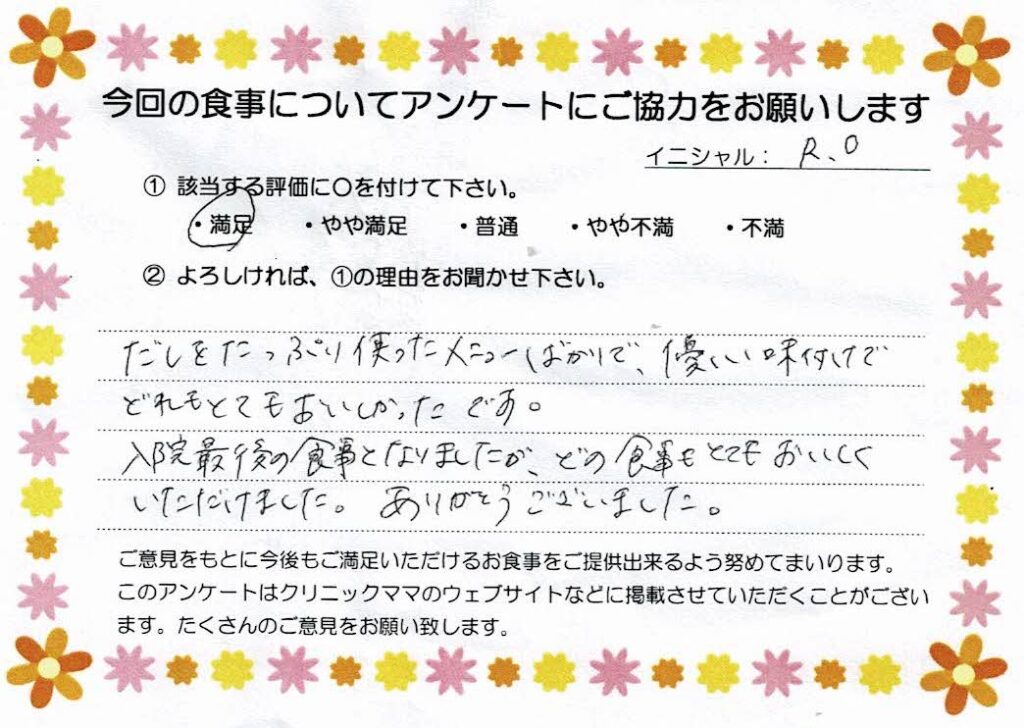 今回の食事についてアンケートにご協力をお願いします
イニシャル： R.O
① 該当する評価に〇を付けて下さい。
・満足 ・やや満足 ・普通 ・やや不満 ・不満
② よろしければ、①の理由をお聞かせ下さい。
だしをたっぷり使ったメニューばかりで、優しい味付けで
どれもとてもおいしかったです。
入院最後の食事となりましたが、どの食事もとてもおいしく
いただけました。ありがとうございました。
ご意見をもとに今後もご満足いただけるお食事をご提供出来るよう努めてまいります。
このアンケートはクリニックママのウェブサイトなどに掲載させていただくことがござい
ます。たくさんのご意見をお願い致します。